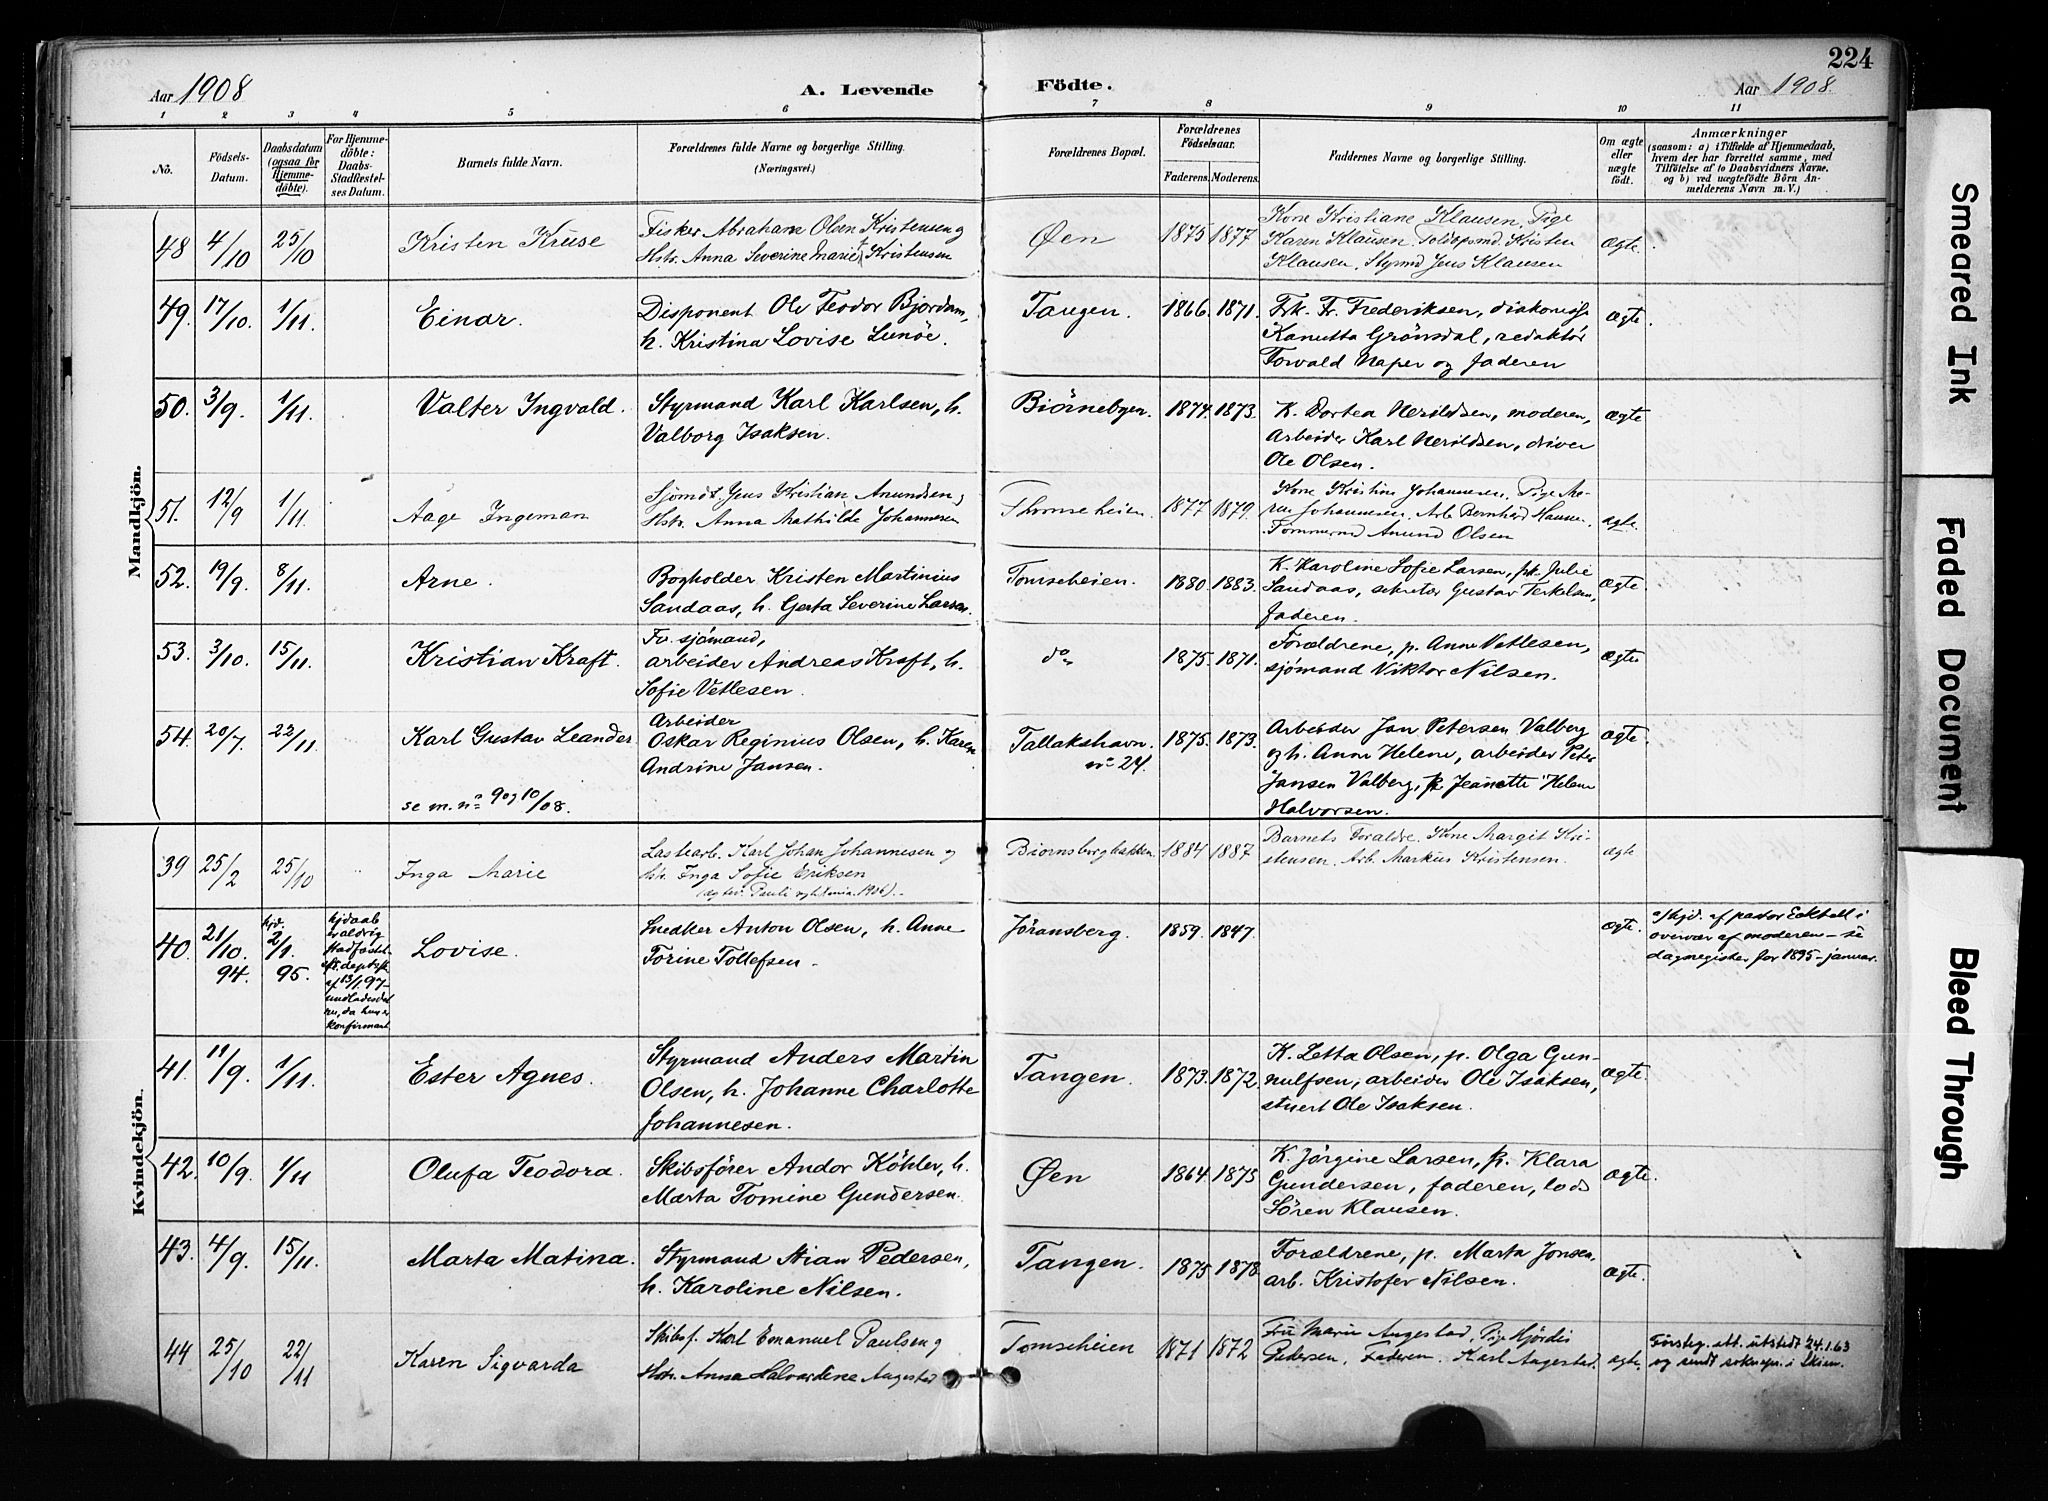 224
Aar 1908
A. Levende
Födte.
Aar 1908
1 2 3 4 5 6 7 8 9 10 11
No.
Födsels-
Datum.
Daabsdatum
(ogsaa for
Hjemme-
döbte).
For Hjemme-
döbte:
Daabs-
Stadfæstel-
ses Datum.
Barnets fulde Navn.
Forældrenes fulde Navne og borgerlige Stilling.
(Næringsvei.)
Forældrenes Bopæl.
Forældrenes
Födselsaar.
Faderens. Moderens.
Faddernes Navne og borgerlige Stilling.
Om ægte
eller
uægte
födt.
Anmærkninger
(saasom: a) i Tilfælde af Hjemmedaab,
hvem der har forrettet samme, med
Tilföielse af to Daabsvidners Navne,
og b) ved uægtefödte Börn An-
melderens Navn m. V.)
Mandkjön.
48 4/10 25/10 Kristen Kruse
Fisker Abraham Olsen Kristensen og
Hstr. Anna Severine Marie Kristensen
Øen 1875 1877
Kone Kristiane Klausen, Pige
Karen Klausen, Toldopsmd. Kristen
Klausen, Styrmd Jens Klausen
ægte
49. 17/10. 1/11. Einar.
Disponent Ole Teodor Bjordam,
h. Kristina Lovise Lunöe.
Tangen. 1866. 1871.
Frk. Fr. Frederiksen, diakonisse
Kanutta Grönsdal, redaktör
Torvald Naper og faderen
ægte.
50. 3/9. 1/11. Valter Ingvald.
Styrmand Karl Karlsen, h.
Valborg Isaksen.
Biörnebyen. 1874. 1873.
K. Dortea Nerildsen, moderen,
Arbeider Karl Nerildsen, driver
Ole Olsen.
ægte
51. 12/9 1/11. Aage Ingeman
Sjömd. Jens Kristian Amundsen og
Hstr. Anna Mathilde Johannesen
Thomseheien. 1877 1879.
Kone Kristine Johannesen, Pige Ma-
ren Johannesen, Arb. Bernhard Hansen,
Tömmermd Amund Olsen
ægte
52. 19/9. 8/11. Arne.
Bogholder Kristen Martinius
Sandaas, h. Gerta Severine Larsen.
Tomseheien. 1880. 1883.
K. Karoline Sofie Larsen, frk. Julie
Sandaas, sekretær Gustav Terkelsen,
faderen.
ægte.
53. 3/10. 15/11. Kristian Kraft.
Fv. sjömand,
arbeider Andreas Kraft, h.
Sofie Vetlesen.
do 1875. 1871.
Forældrene, p. Anne Vetlesen,
sjömand Viktor Nilsen.
ægte
54. 20/7 22/11. Karl Gustav Leander
se m. no 9 og 10/08.
Arbeider
Oskar Reginius Olsen, h. Karen
Andrine Jansen.
Tallakshavn.
no 24. 1875. 1873.
Arbeider Jan Petersen Valberg
og h. Anne Helene, arbeider Peter
Jansen Valberg, frk Jeanette Helene
Halvorsen.
ægte.
Kvindekjön.
39 25/2 25/10 Inga Marie
Lastearb. Karl Johan Johannesen og
Hstr. Inga Sofie Eriksen
Biornsborgbakken. 1884 1887
Barnets Foraldre. Kone Margit Kri-
stensen. Arb. Markus Kristensen.
ægte
40. 21/10.
94. hjd.
2/1.
95.
hjdaab
er aldrig
stadfæstet
af 13/1 97-
da hun er
konfirmant
Lovise.
Snedker Anton Olsen, h. Anne
Torine Tollefsen.
Jöransberg. 1859. 1847.
ægte.
a/ hjd. af pastor Eckholl i
overvær af moderen - se
dagsregister for 1895 - januar.
41. 11/9. 1/11. Ester Agnes.
Styrmand Anders Martin
Olsen, h. Johanne Charlotte
Johannesen.
Tangen. 1873. 1872.
K. Letta Olsen, p. Olga Gun-
nulfsen, arbeider Ole Isaksen,
stuert Ole Isaksen.
ægte.
42. 10/9. 1/11 Olufa Teodora.
Skibsförer Andor Köhler, h.
Marta Tomine Gundersen.
Øen 1864. 1875
K. Jörgine Larsen, frk. Klara
Gundersen, faderen, lods
Sören Klausen.
ægte.
43. 4/9. 15/11. Marta Matina.
Styrmand Stian Pedersen,
h. Karoline Nilsen.
Tangen. 1875 1878.
Forældrene, p. Marta Jonsen,
arb. Kristofer Nilsen.
ægte.
44 25/10 22/11 Karen Sigvarda
Skibsf. Karl Emanuel Paulsen og
Hstr. Anna Halvardine Augestad
Tomseheien 1871 1872
Fru Marie Augestad, Pige Hjördis
Pedersen, Faderen. Karl Augestad.
ægte
Förstegangs att. utstedt 24.1.63
og sendt soknepr. i Skien.
Smeared Ink
Faded Document
Bleed Through